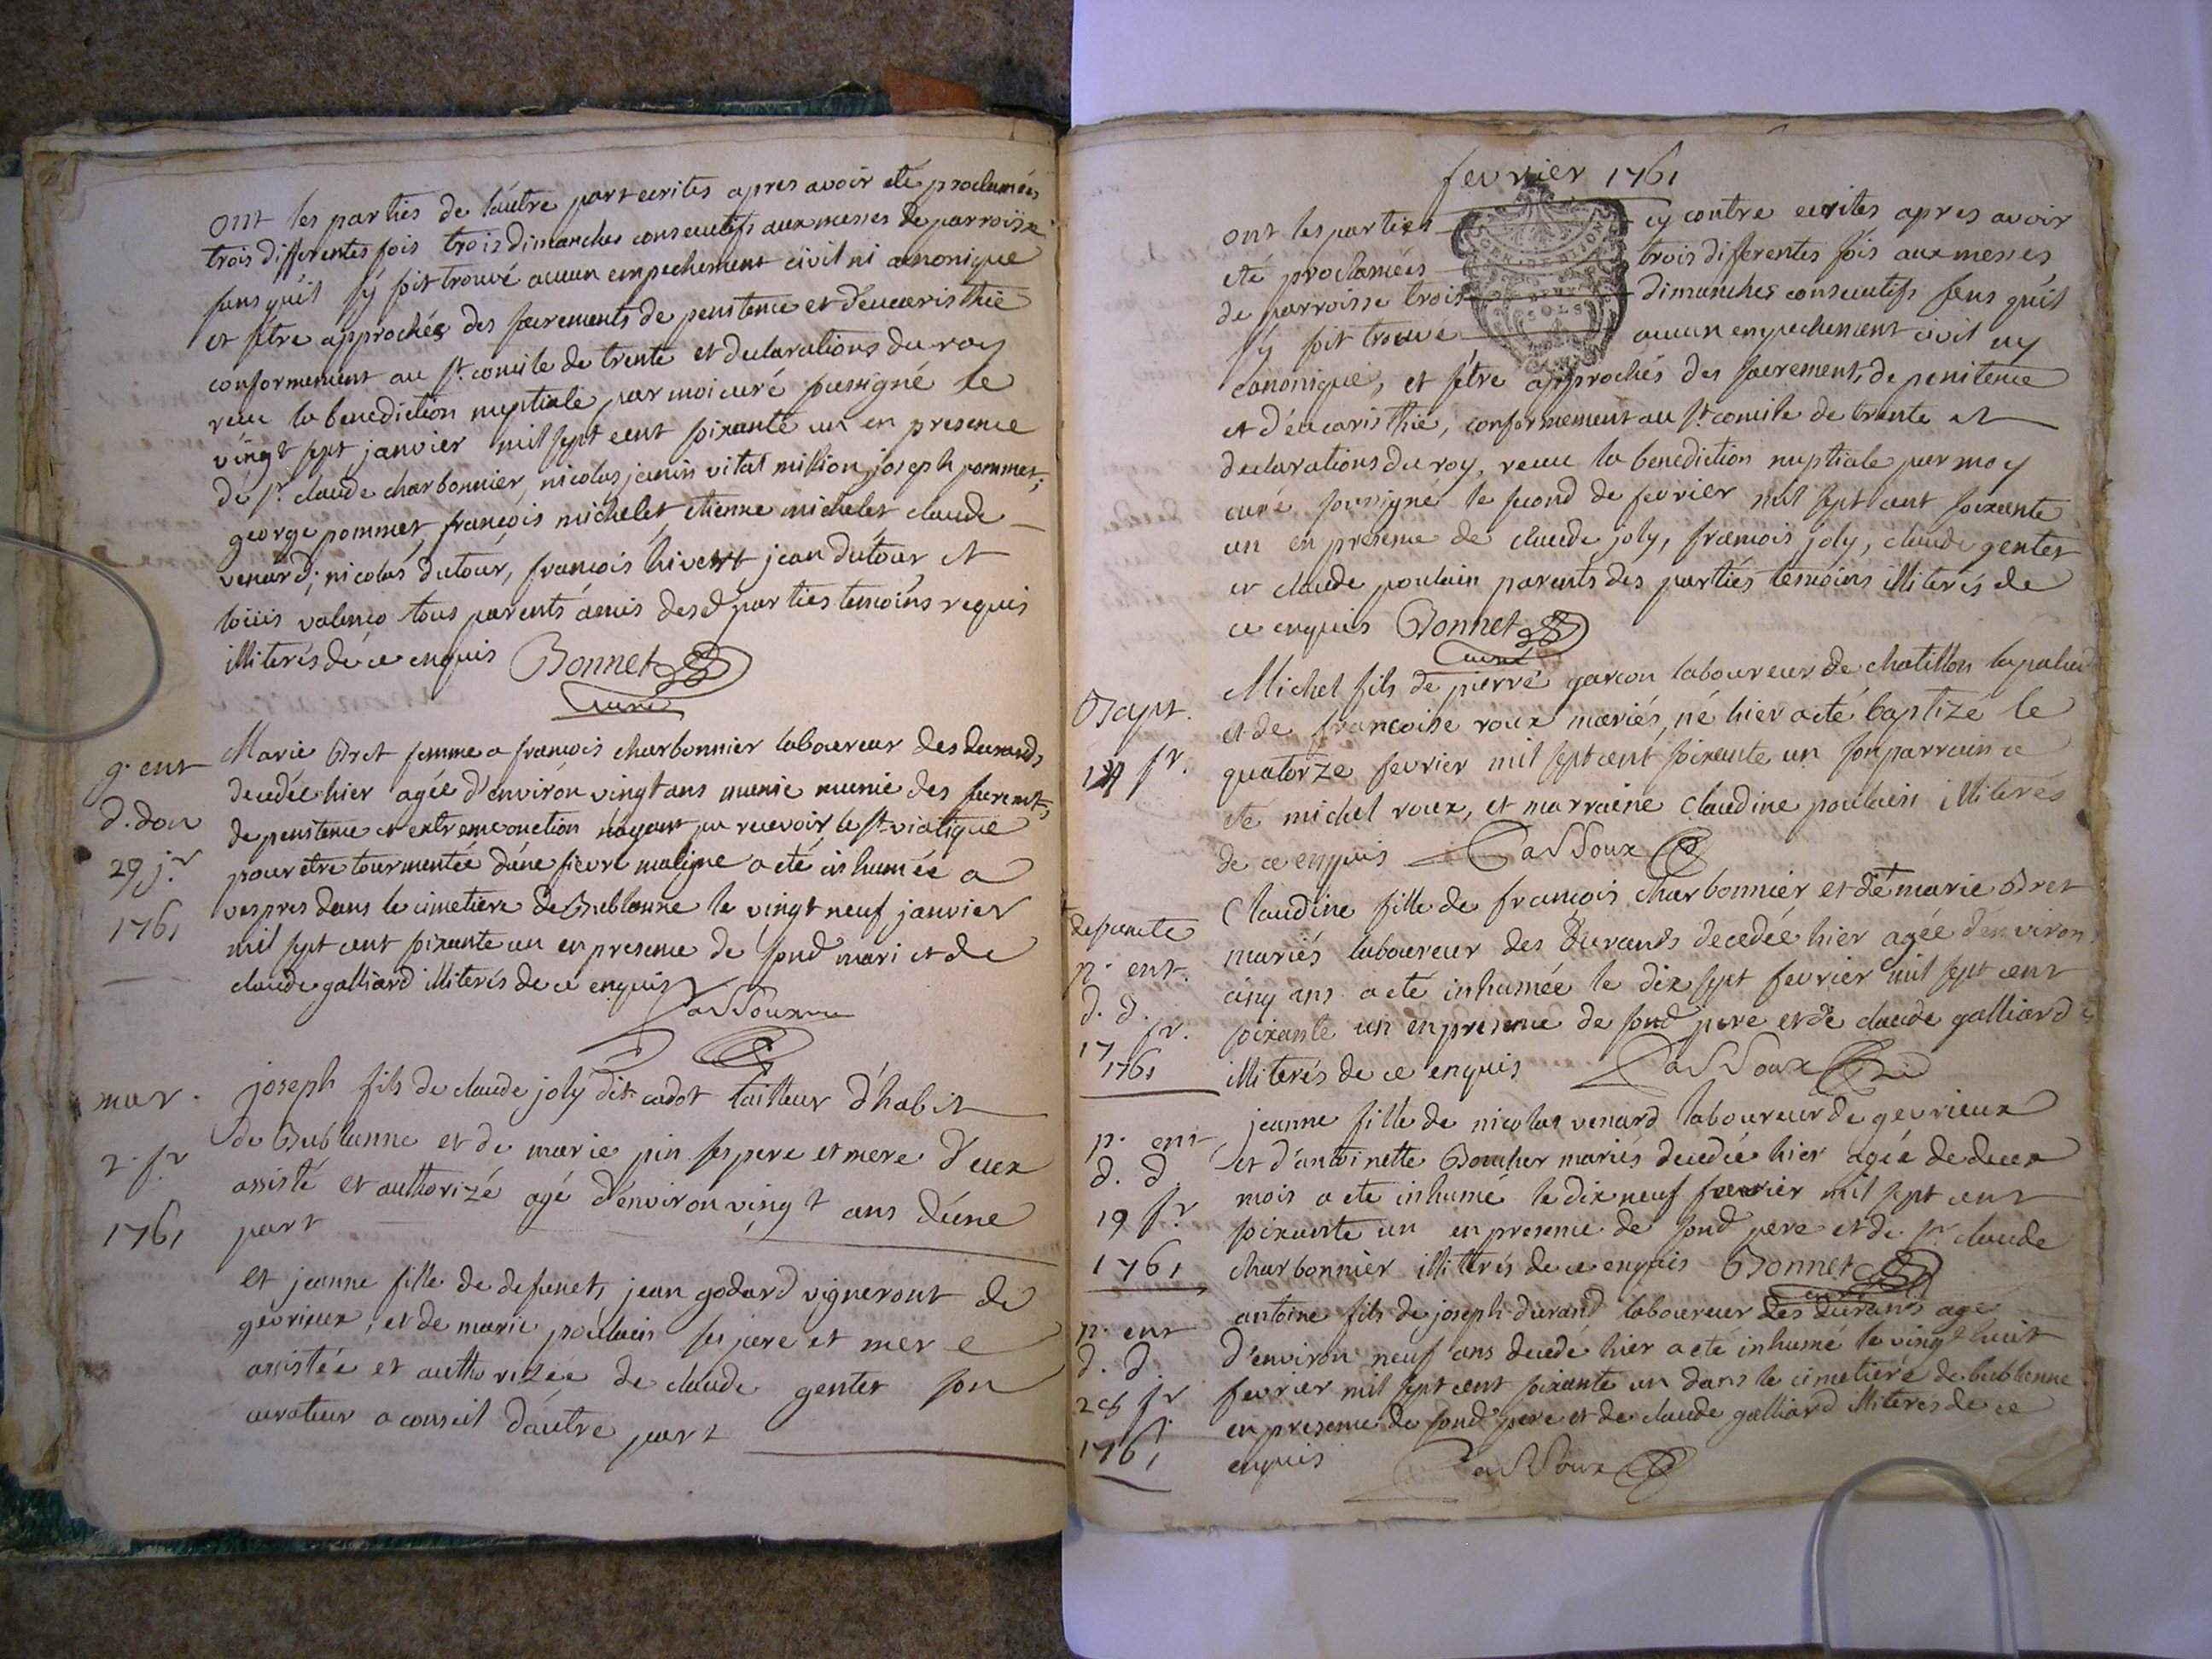 ont les parties de l'autre part ecrites apres avoir eté proclamées
trois differentes fois trois dimanches consecutifs aux messes de parroisse
sans qu'il s'y soit trouvé aucun empechement civil ni canonique
et s'etre approchées des sacrements de penitence et d'eucaristhie
conformement au st. concile de trente et declarations du roy
receu la benediction nuptiale par moi curé soussigné le
vingt sept janvier mil sept cent soixante un en presence
de sr. claude charbonnier, nicolas janin vital million joseph pommet,
george pommet, françois michelet, etienne michelet claude
venard, nicolas dutour, françois hivert jean dutour et
loüis valenço tous parents amis desd parties temoins requis
illiterés de ce enquis Bonnet
curé
g. ent
d. don
29 j.r
1761
Marie Bret femme a françois charbonnier laboureur des durands
decedée hier agée d'environ vingt ans munie munie des sacremts,
de penitence et extreme onction n'ayant pu recevoir le st. viatique
pour etre tourmentée d'une fievre maligne a eté inhumée a
vespres dans le cimetiere de Bublanne le vingt neuf janvier
mil sept cent soixante un en presence de sond mari et de
claude galliard illiterés de ce enquis
mar.
2. fr
1761
joseph fils de claude joly dit cadot tailleur d'habit
de Bublanne et de marie pin ses pere et mere d'eux
assisté et authorizé agé d'environ vingt ans d'une
part
et jeanne fille de defunct, jean godard vigneront de
gevrieux, et de marie poulain ses pere et mere
assistée et authorizée de claude gentet son
curateur a conseil d'autre part
fevrier 1761
GEN. DE DIJON
DEUX
SOLS
ont les parties cy contre ecrites apres avoir
eté proclamées trois differentes fois aux messes
de parroisse trois dimanches consecutifs sans qu'il
s'y soit trouvé aucun empechement civil ny
canonique, et s'etre approchés des sacrements de penitence
et d'eucaristhie, conformement au st. concile de trente et
declarations du roy, receu la benediction nuptiale par moy
curé soussigné le second de fevrier mil sept cent soixante
un en presence de claude joly, françois joly, claude gentet
et claude poulain parents des parties temoins illiterés de
ce enquis Bonnet
curé
Bapt.
14 fr.
Michel fils de pierre garcon laboureur de chatillon lapalud
et de francoise roux mariés, né hier a eté baptizé le
quatorze fevrier mil sept cent soixante un son parrain a
eté michel roux, et marraine claudine poulain illiterés
de ce enquis
defuncte
p. ent.
d. d.
17 fr.
1761
Claudine fille de françois charbonnier et de marie Bret
mariés laboureur des Durands decedée hier agée d'environ
cinq ans a eté inhumée le dix sept fevrier mil sept cent
soixante un en presence de sond pere et de claude galliard
illiterés de ce enquis
p. ent
d. d.
19 fr
1761
jeanne fille de nicolas venard laboureur de gevrieux
et d'antoinette Boucher mariés decedée hier agée de deux
mois a eté inhumé le dix neuf fevrier mil sept cent
soixante un en presence de sond pere et de sr. claude
charbonnier illiterés de ce enquis Bonnet
curé
p. ent
d. d
28 fr
1761
antoine fils de joseph durand laboureur des durands agé
d'environ neuf ans decedé hier a eté inhumé le vingt huit
fevrier mil sept cent soixante un dans le cimetiere de bublanne
en presence de sond pere et de claude galliard illiterés de ce
enquis